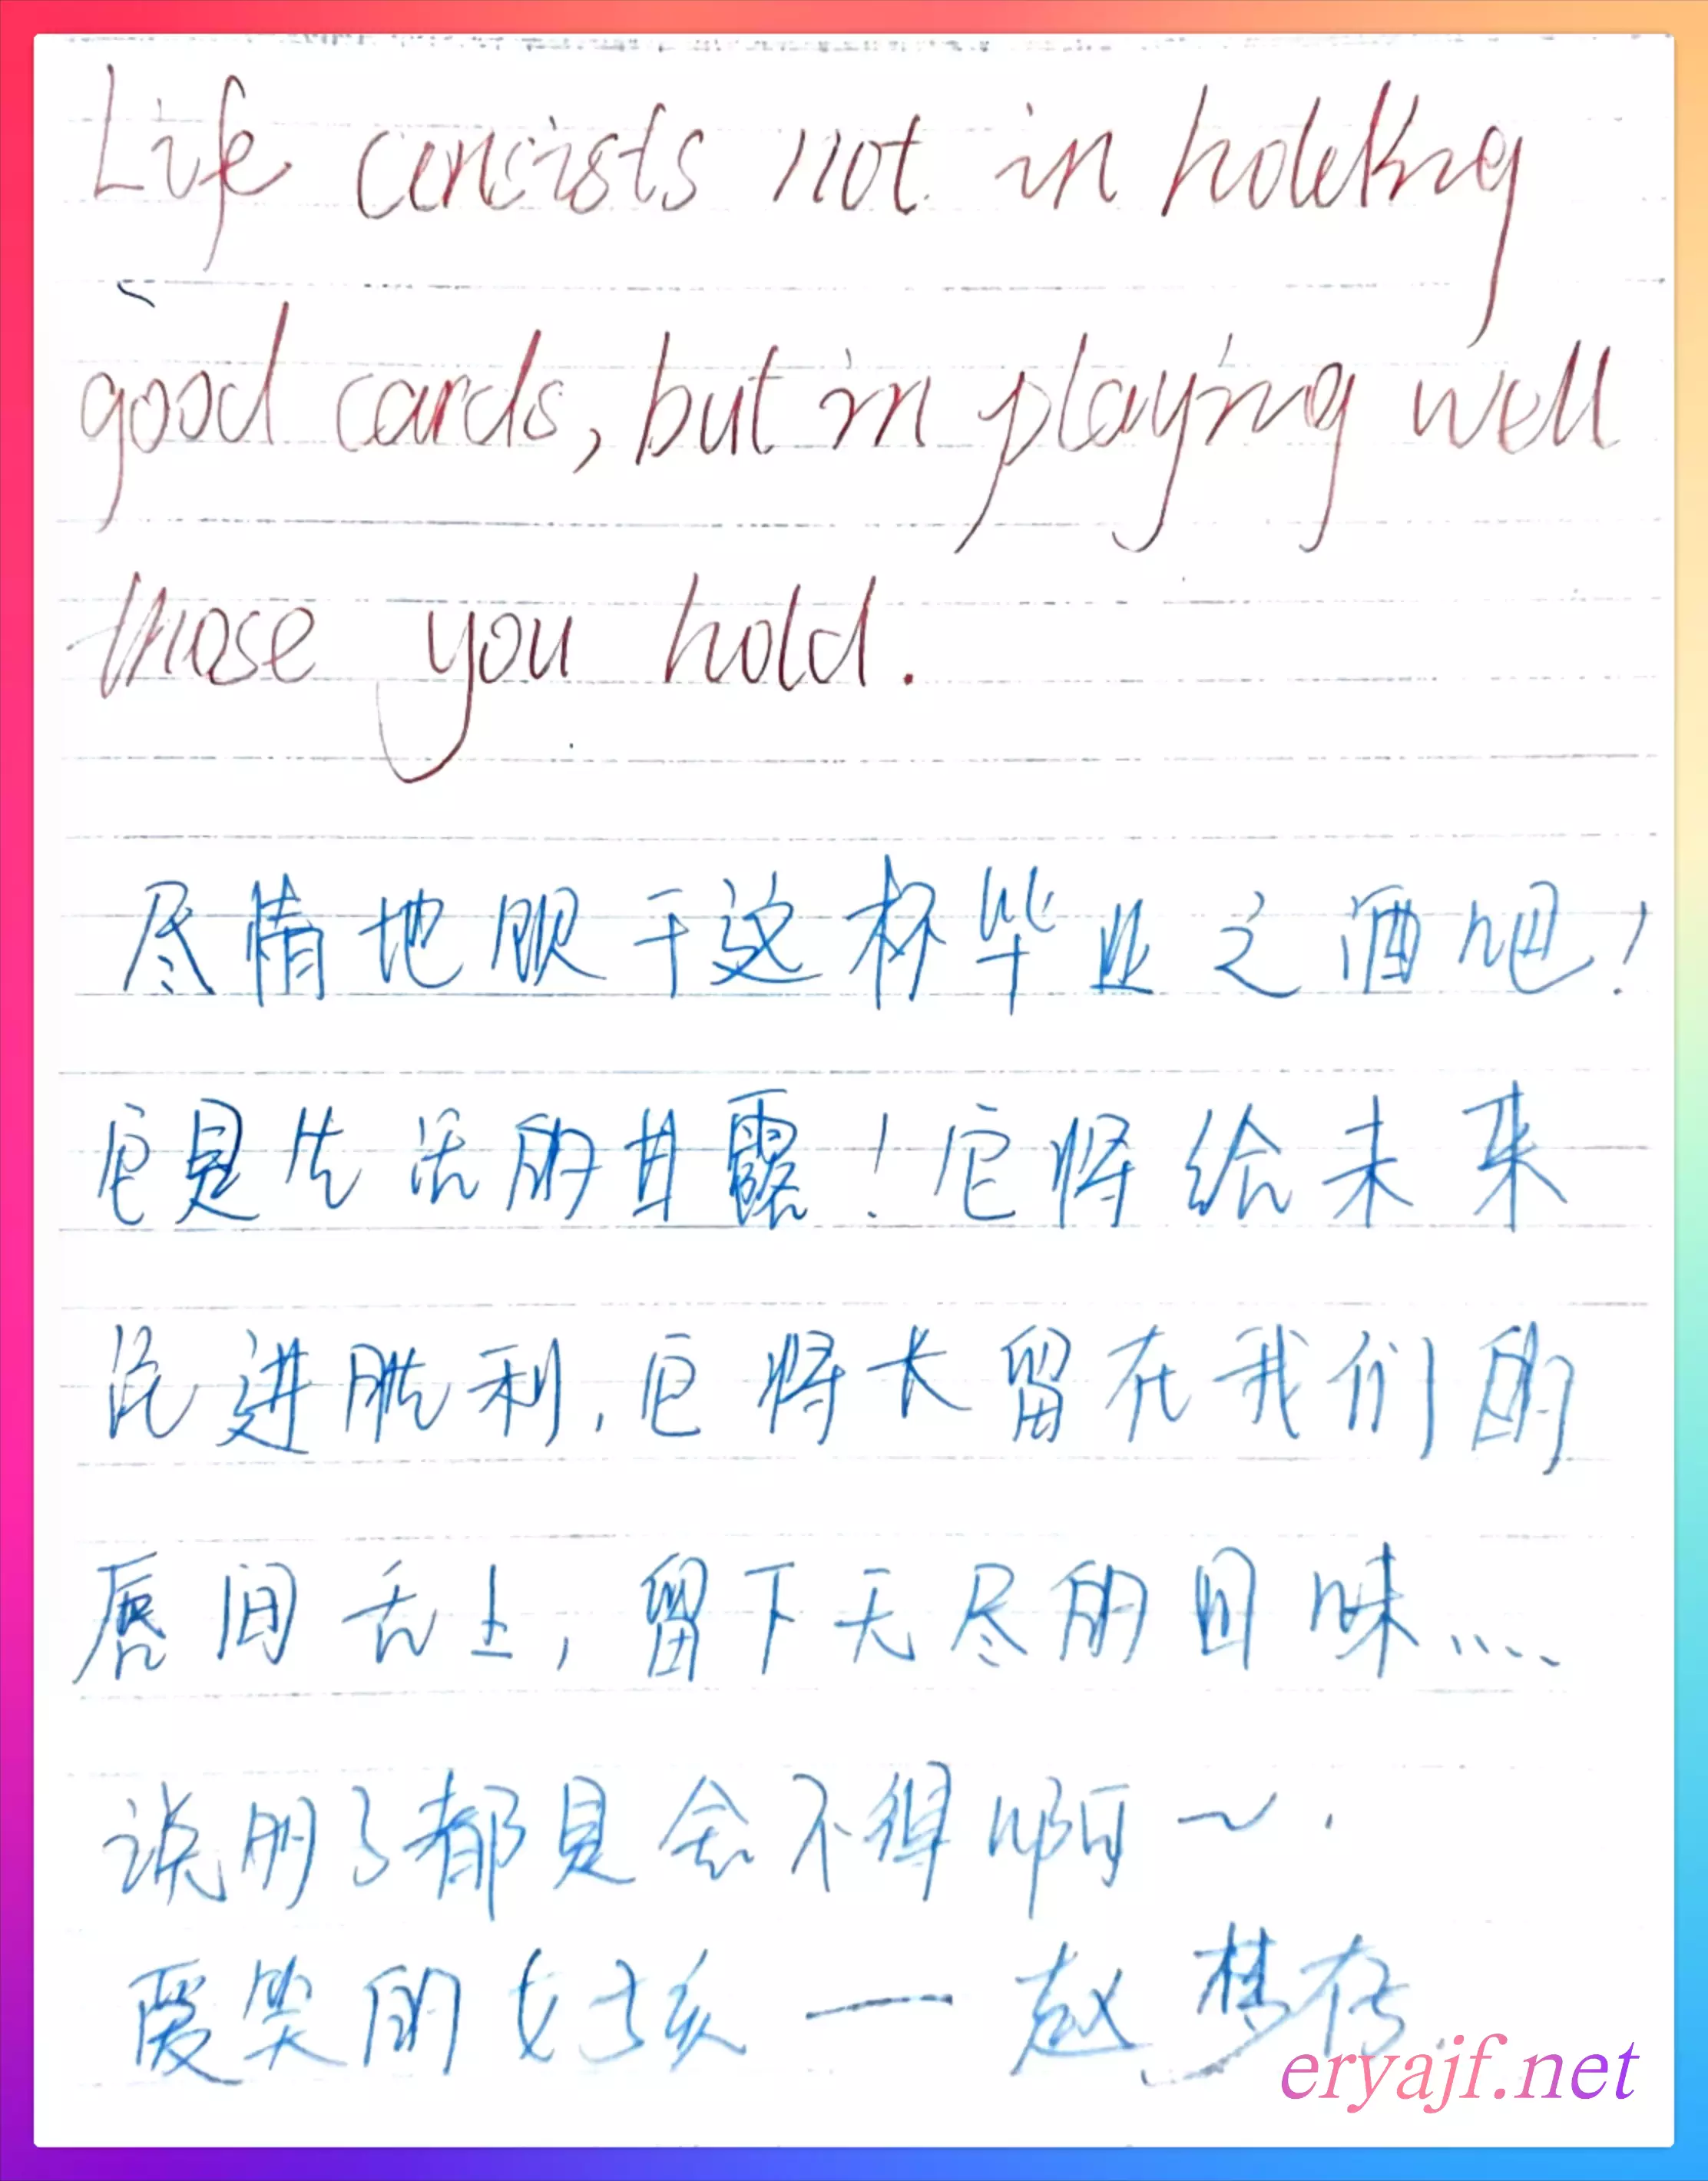 Life consists not in holding
good cards, but in playing well
those you hold.
尽情地饮干这杯毕业之酒吧!
它是生活的甘露!它将给未来
灌进胜利,它将长留在我们的
唇间舌上,留下无尽的回味……
说明了都是舍不得啊~.
爱笑的女孩——赵梦
eryajf.net